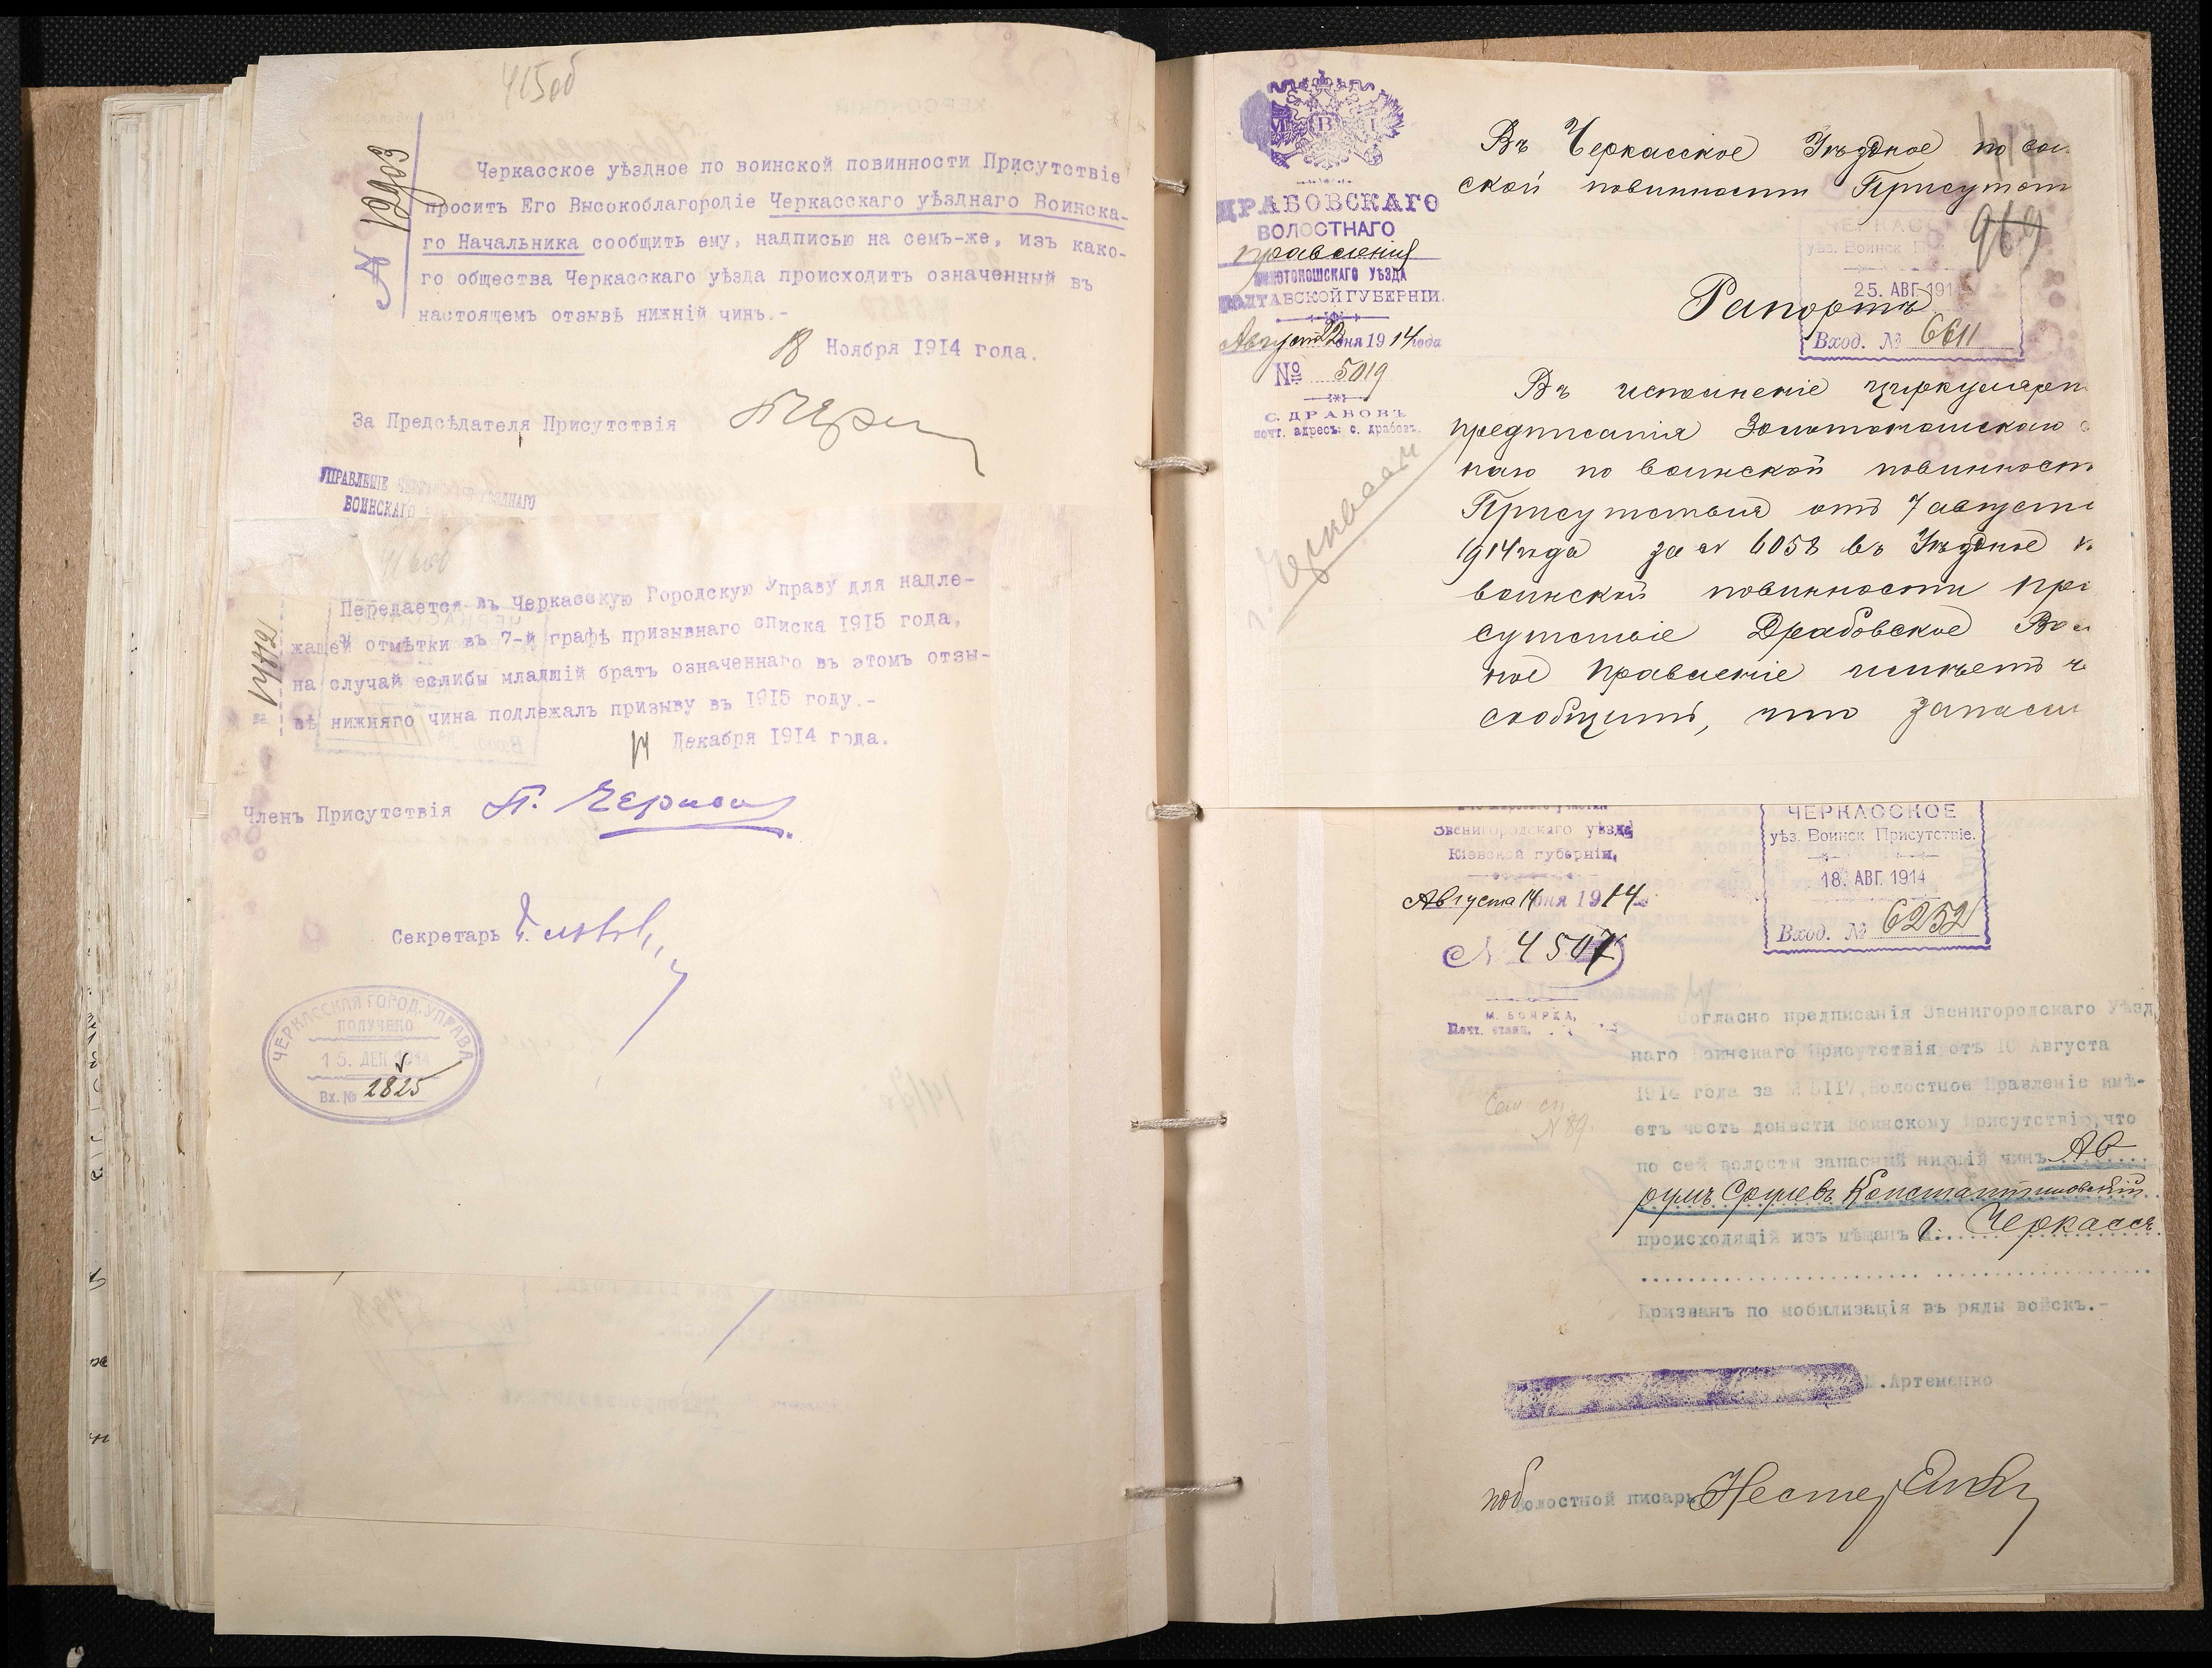 415об
№ 12903
Черкасское уѣздное по воинской повинности Присутствіе
проситъ Его Высокоблагородіе Черкасскаго уѣзднаго Воинска-
го Начальника сообщить ему, надписью на семъ-же, изъ како-
го общества Черкасскаго уѣзда происходитъ означенный въ
настоящемъ отзывѣ нижній чинъ.-
18 Ноября 1914 года.
За Предсѣдателя Присутствія
УПРАВЛЕНІЕ УѢЗДНАГО
ВОИНСКАГО
Передается въ Черкасскую Городскую Управу для надле-
жащей отмѣтки въ 7-й графѣ призывнаго списка 1915 года,
на случай еслибы младшій братъ означеннаго въ этомъ отзы-
вѣ нижняго чина подлежалъ призыву въ 1915 году.-
14 Декабря 1914 года.
Членъ Присутствія
Секретарь
ЧЕРКАССКАЯ ГОРОД. УПРАВА
ПОЛУЧЕНО
15. ДЕК 1914
Вх. № 2825
М В Д
ДРАБОВСКАГО
ВОЛОСТНАГО
правленія
ЗОЛОТОНОШСКАГО УѢЗДА
ПОЛТАВСКОЙ ГУБЕРНІИ.
Августа 22 дня 1914 года
№ 5019
С. ДРАБОВЪ
почт. адресъ: с. Драбовъ.
г. Черкассы
Въ Черкасское Уѣздное по вои
ской повинности Присутст
969
ЧЕРКАС
уѣз. Воинск П
25. АВГ 191
Вход. № 6611
Рапортъ
Въ исполненіе циркулярн
предписанія Золотоношскаго
наго по воинской повинност
Присутствія отъ 7 августа
1914 года за № 6058 въ Уѣздное
воинской повинности При
сутствіе Драбовское Вол
ное Правленіе имѣетъ ч
сообщить, что запасн
Звенигородскаго уѣзда
Кіевской губерніи,
Августа 14 дня 1914
№ 4507
М. БОЯРКА,
Почт. станц.
ЧЕРКАССКОЕ
уѣз. Воинск Присутствіе.
18. АВГ. 1914
Вход. № 6252
№ 89.
Согласно предписанія Звенигородскаго Уѣзд
наго Воинскаго Присутствія отъ 10 Августа
1914 года за № 5117, Волостное Правленіе имѣ-
етъ честь донести Воинскому Присутствію, что
по сей волости запасный нижній чинъ Ав
румъ Срулевъ Константиновскій
происходящій изъ мѣщанъ г. Черкассъ
Призванъ по мобилизація въ ряды войскъ.-
Артеменко
Волостной писарь